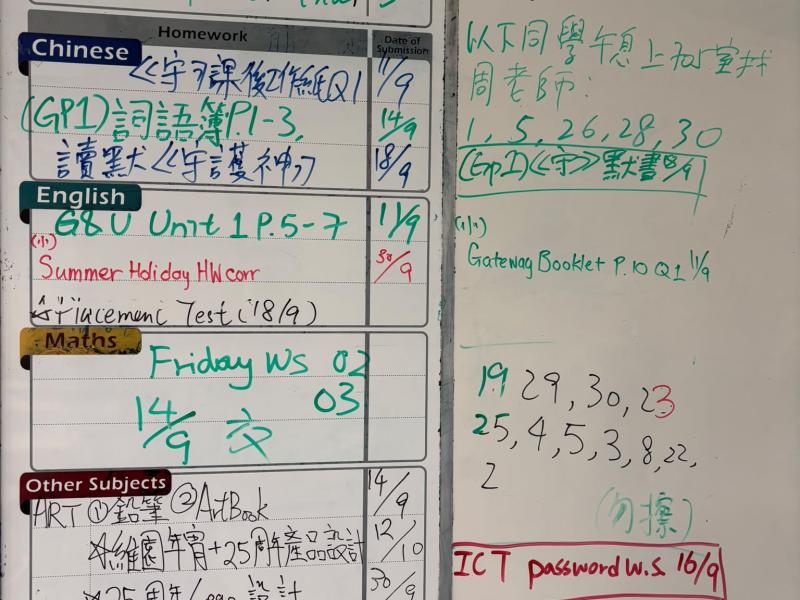 Homework
Date of Submission
Chinese
《守》課後工作紙Q1 11/9
(GP1)詞語簿P.1-3, 14/9
讀默《守護神》 18/9
English
G&U Unit 1 P.5-7 11/9
Summer Holiday HW corr 30/9
☆Placement Test (18/9)
Maths
Friday WS 02
03
14/9 交
Other Subjects
ART ①鉛筆 ②ArtBook 14/9
☆維園年宵+25周年產品設計 12/10
☆25周年logo設計 30/9
以下同學午息上 室找
周老師:
1, 5, 26, 28, 30
(Gp1)《守》默書 /9
Gateway Booklet P.10 Q1 11/9
19 29, 30, 23
25, 4, 5, 3, 8, 22,
2
(勿擦)
ICT password w.s. 16/9